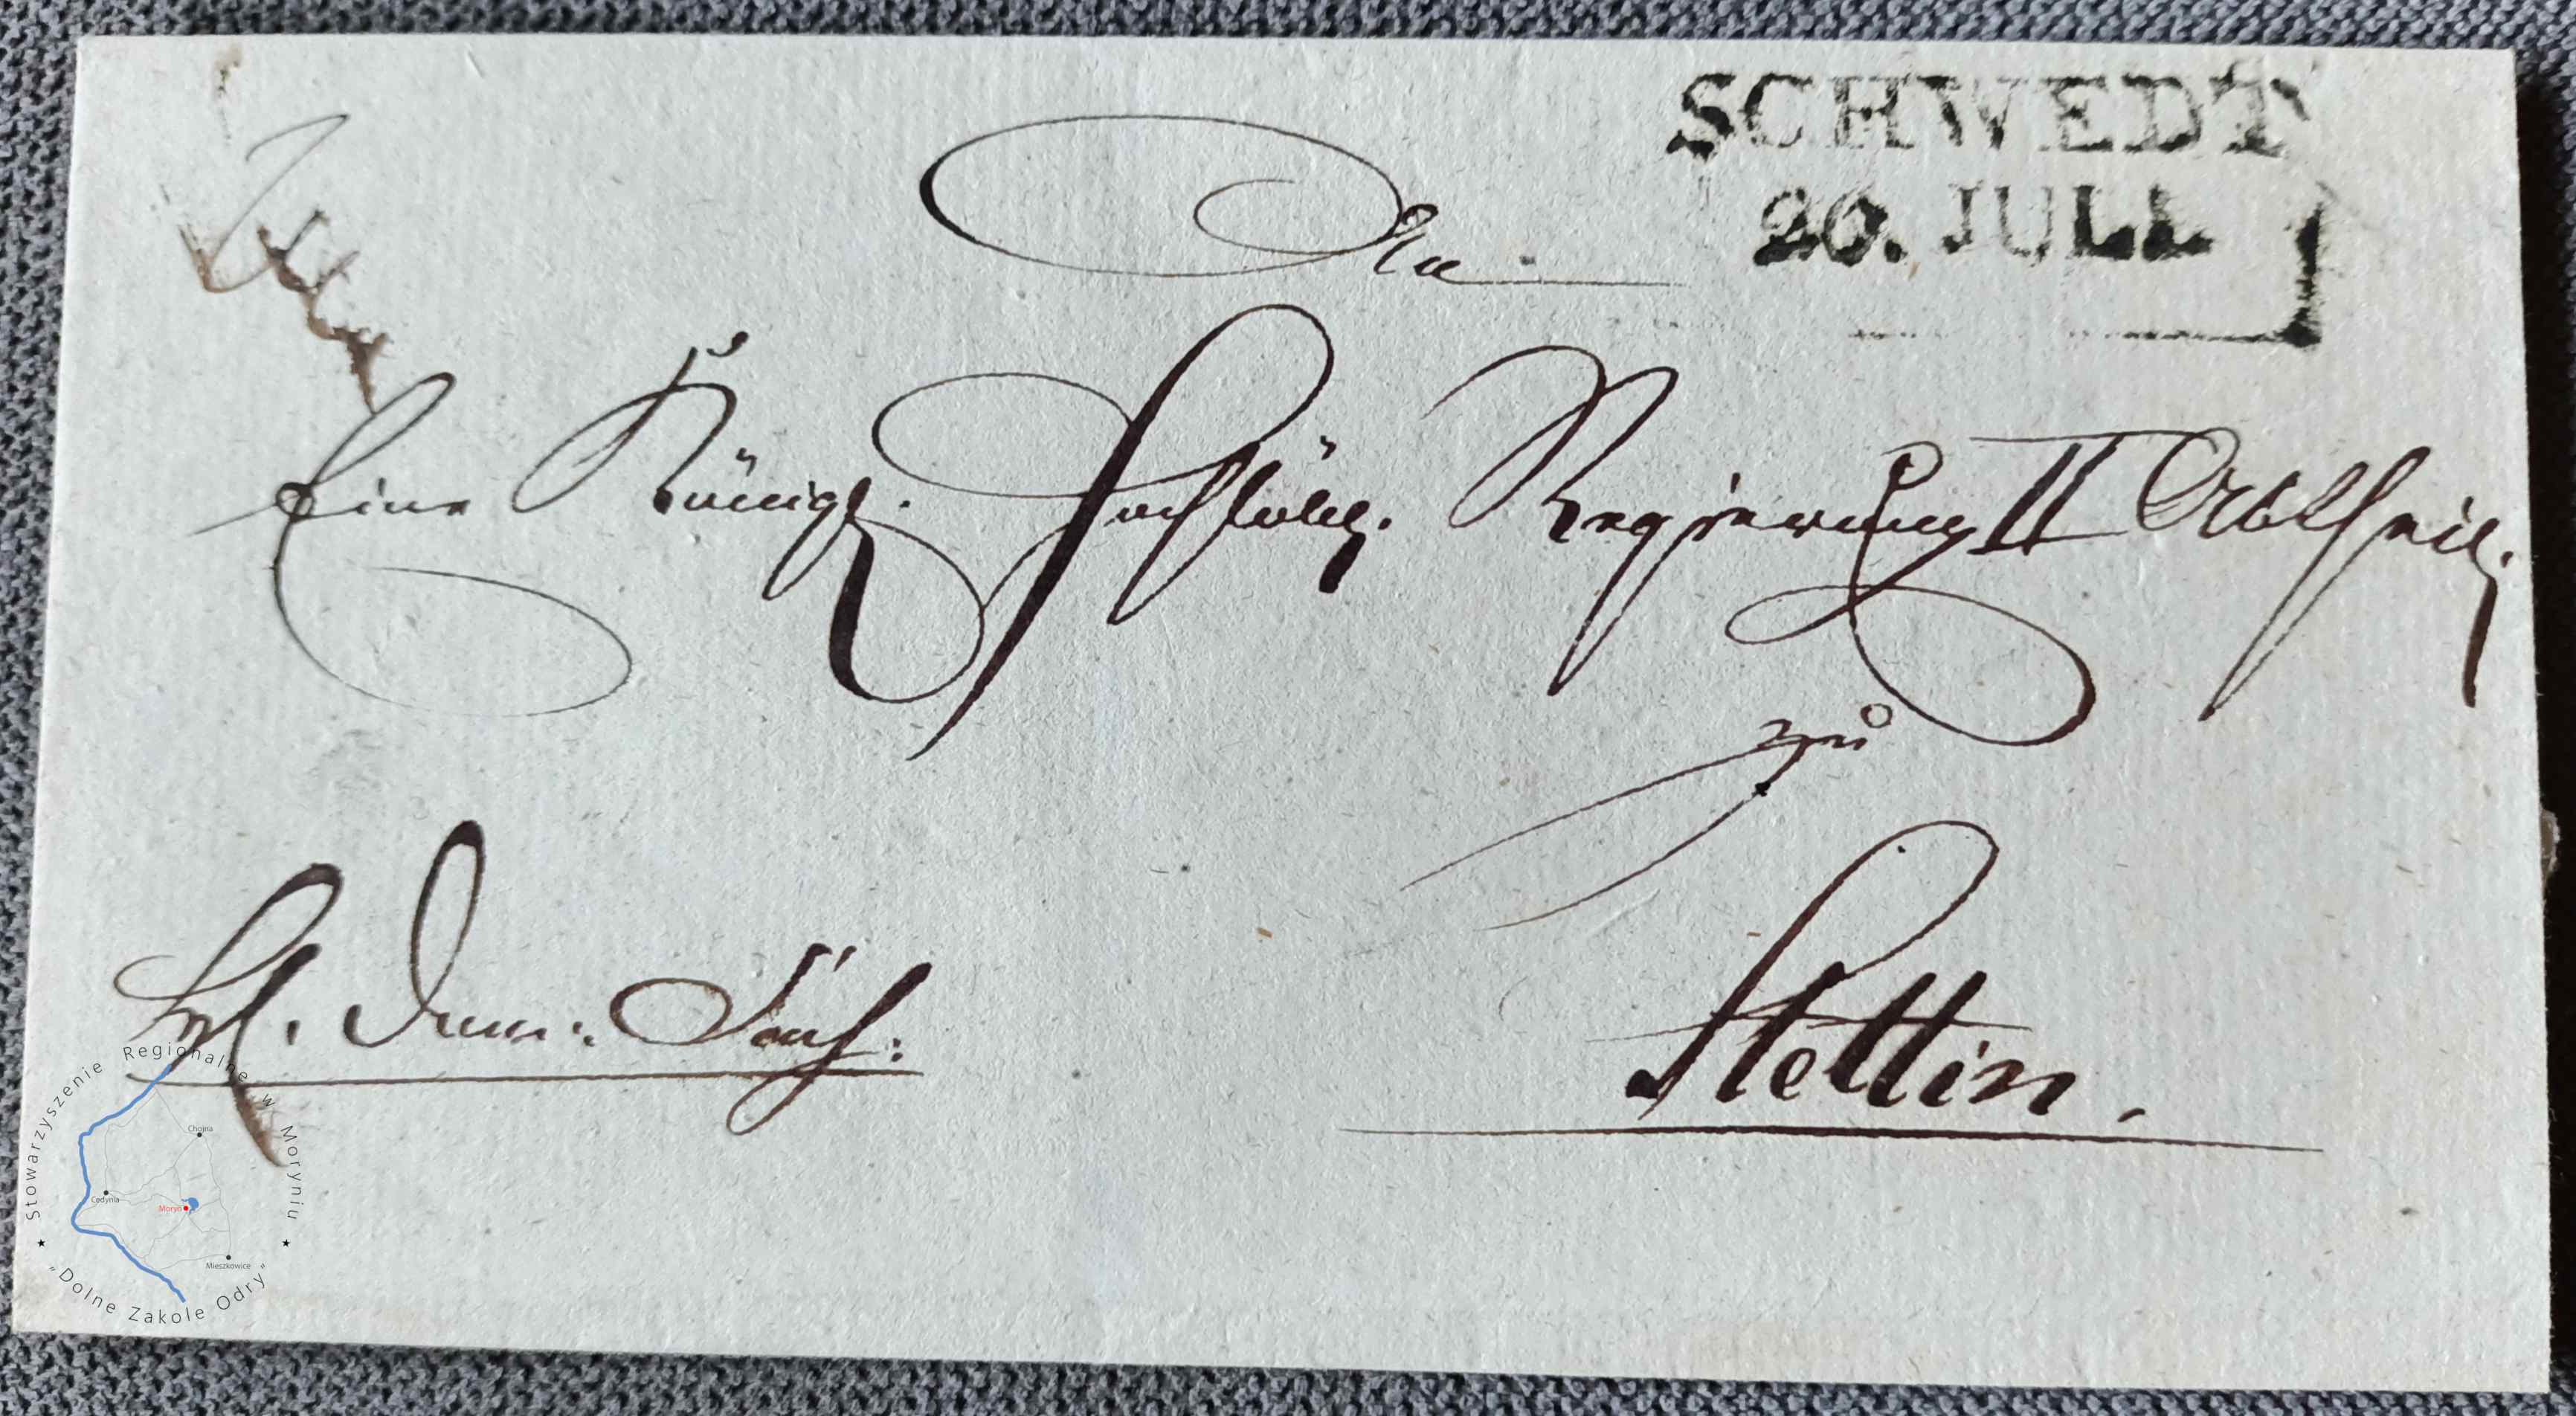 SCHWEDT
20. JULI
An
Eine Königl. Hochlöbl. Regierung II Abtheil.
zu
Stettin.
Kgl. Dom: Sach:
Stowarzyszenie Regionalne w Moryniu
"Dolne Zakole Odry"
Chojna
Cedynia
Moryń
Mieszkowice